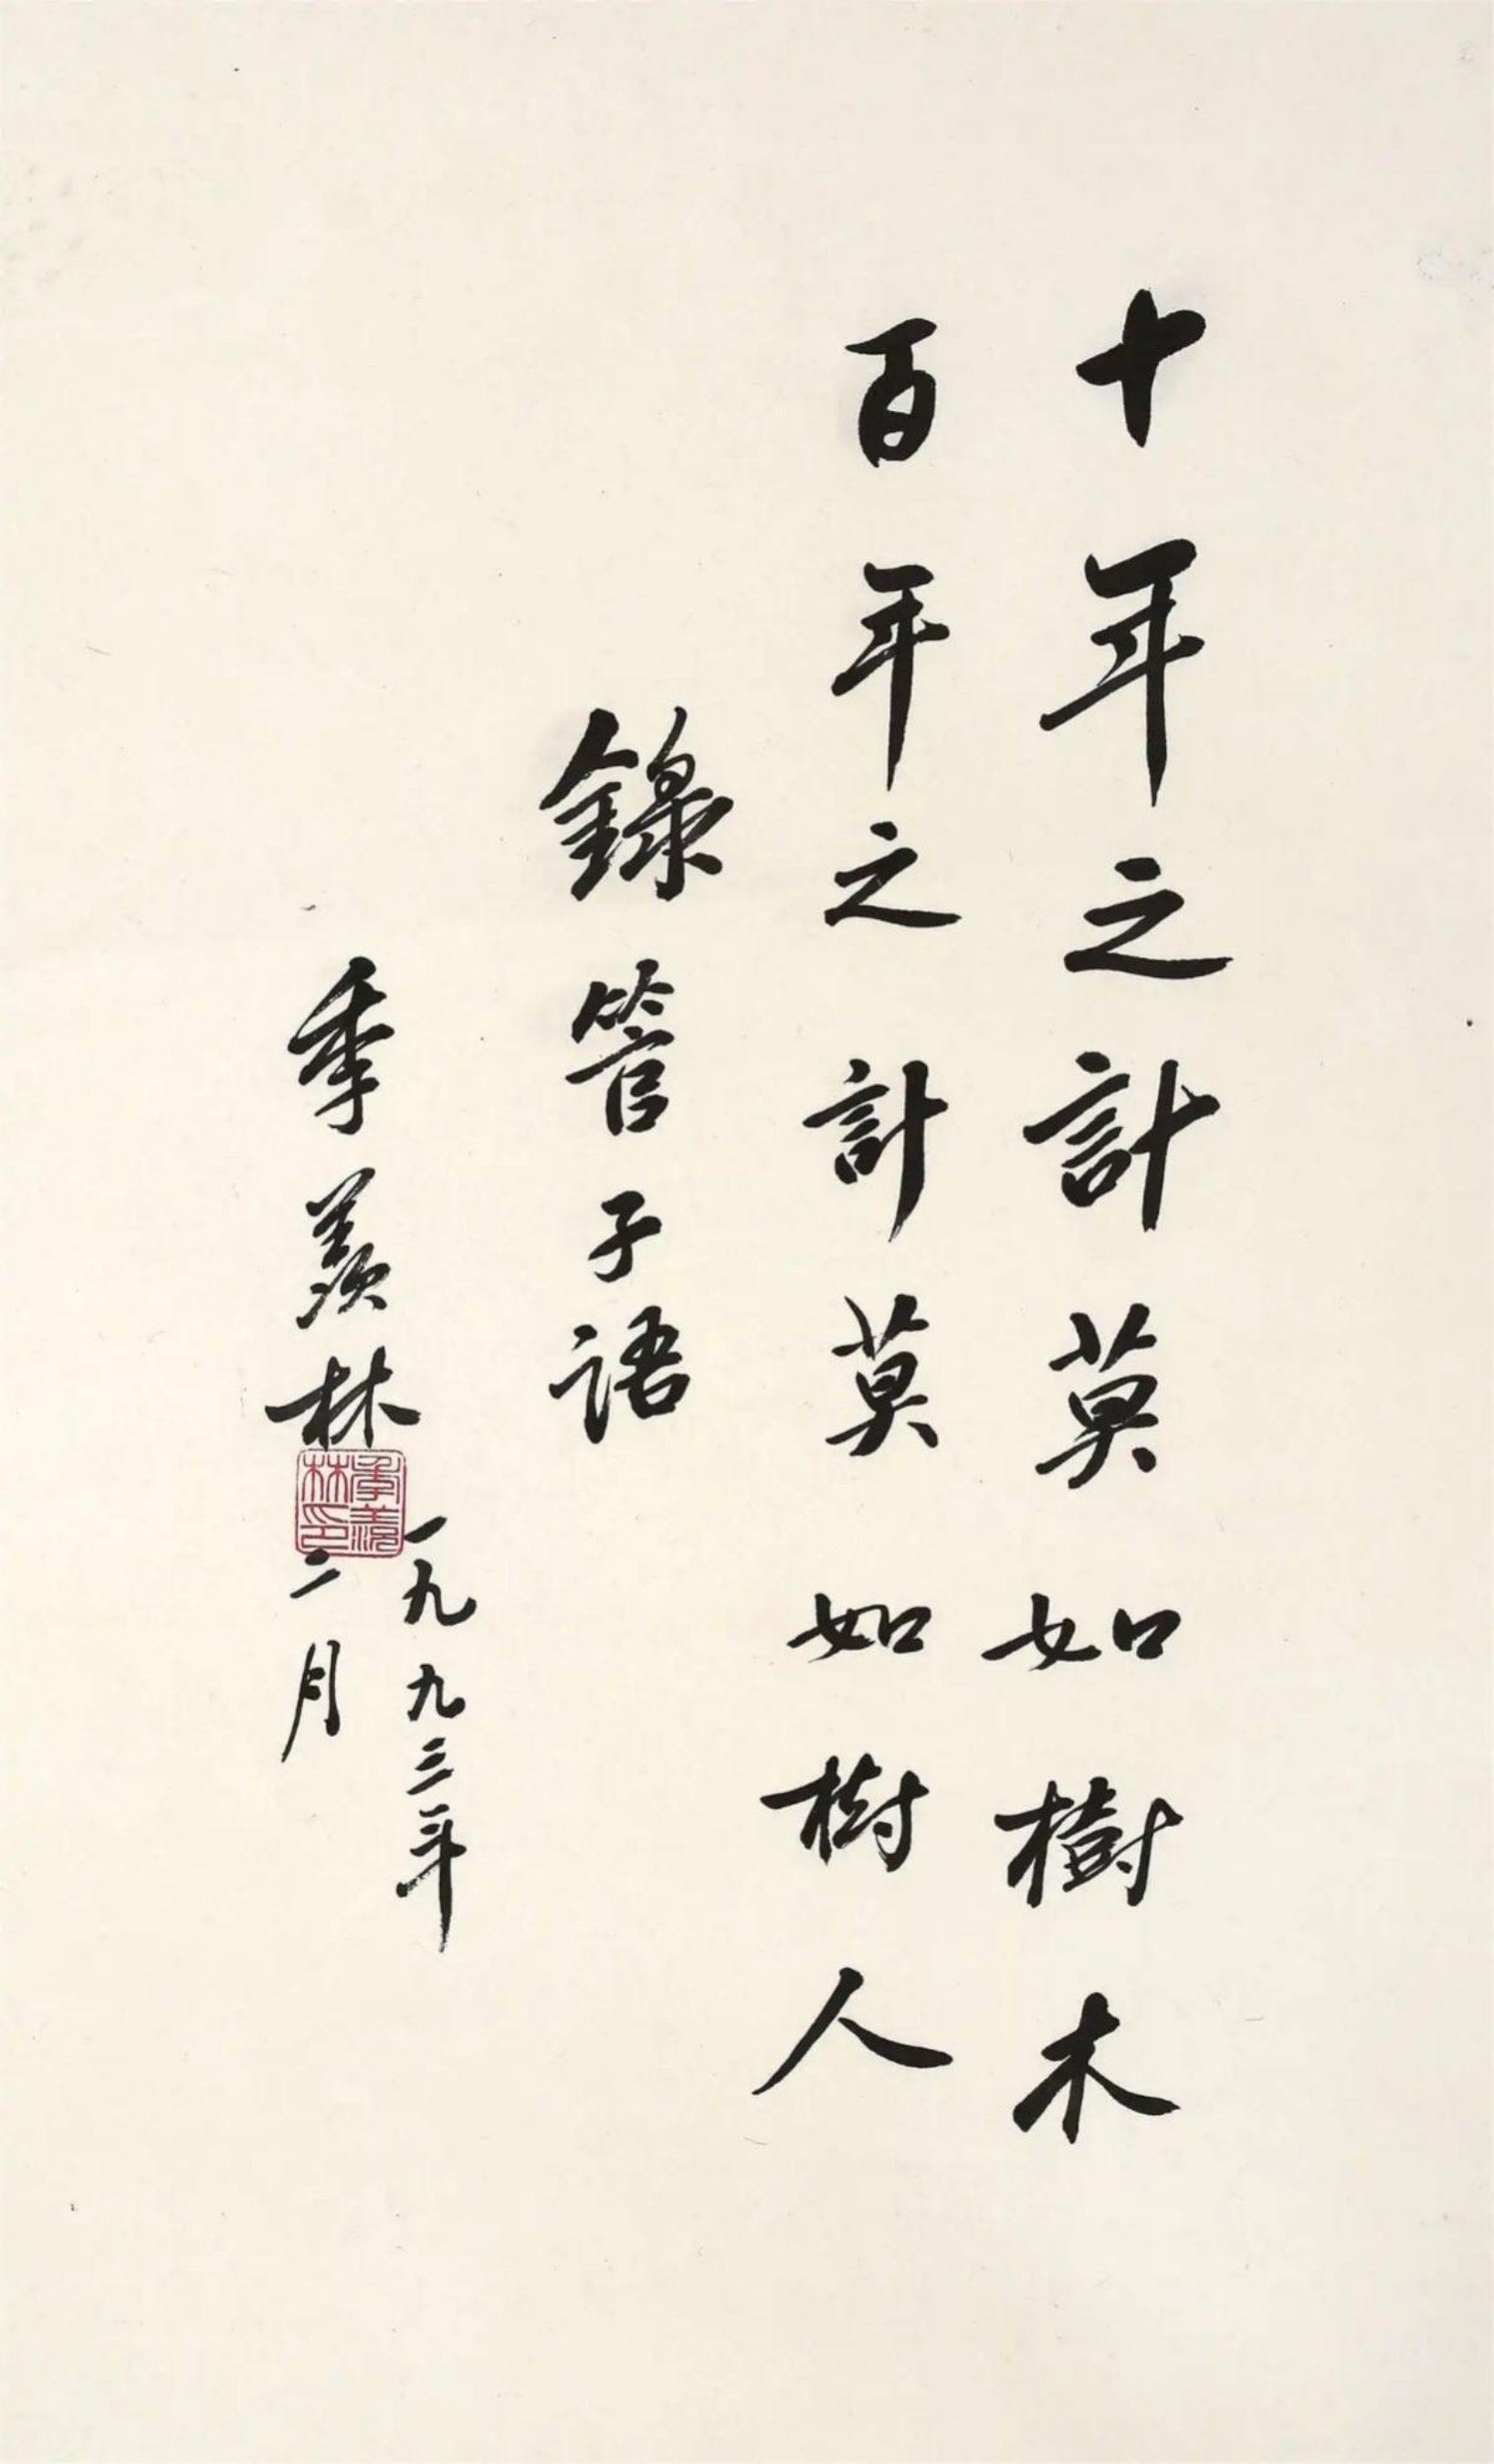 十年之計莫如樹木
百年之計莫如樹人
錄管子語
季羨林
一九九三年
二月
季羨林印